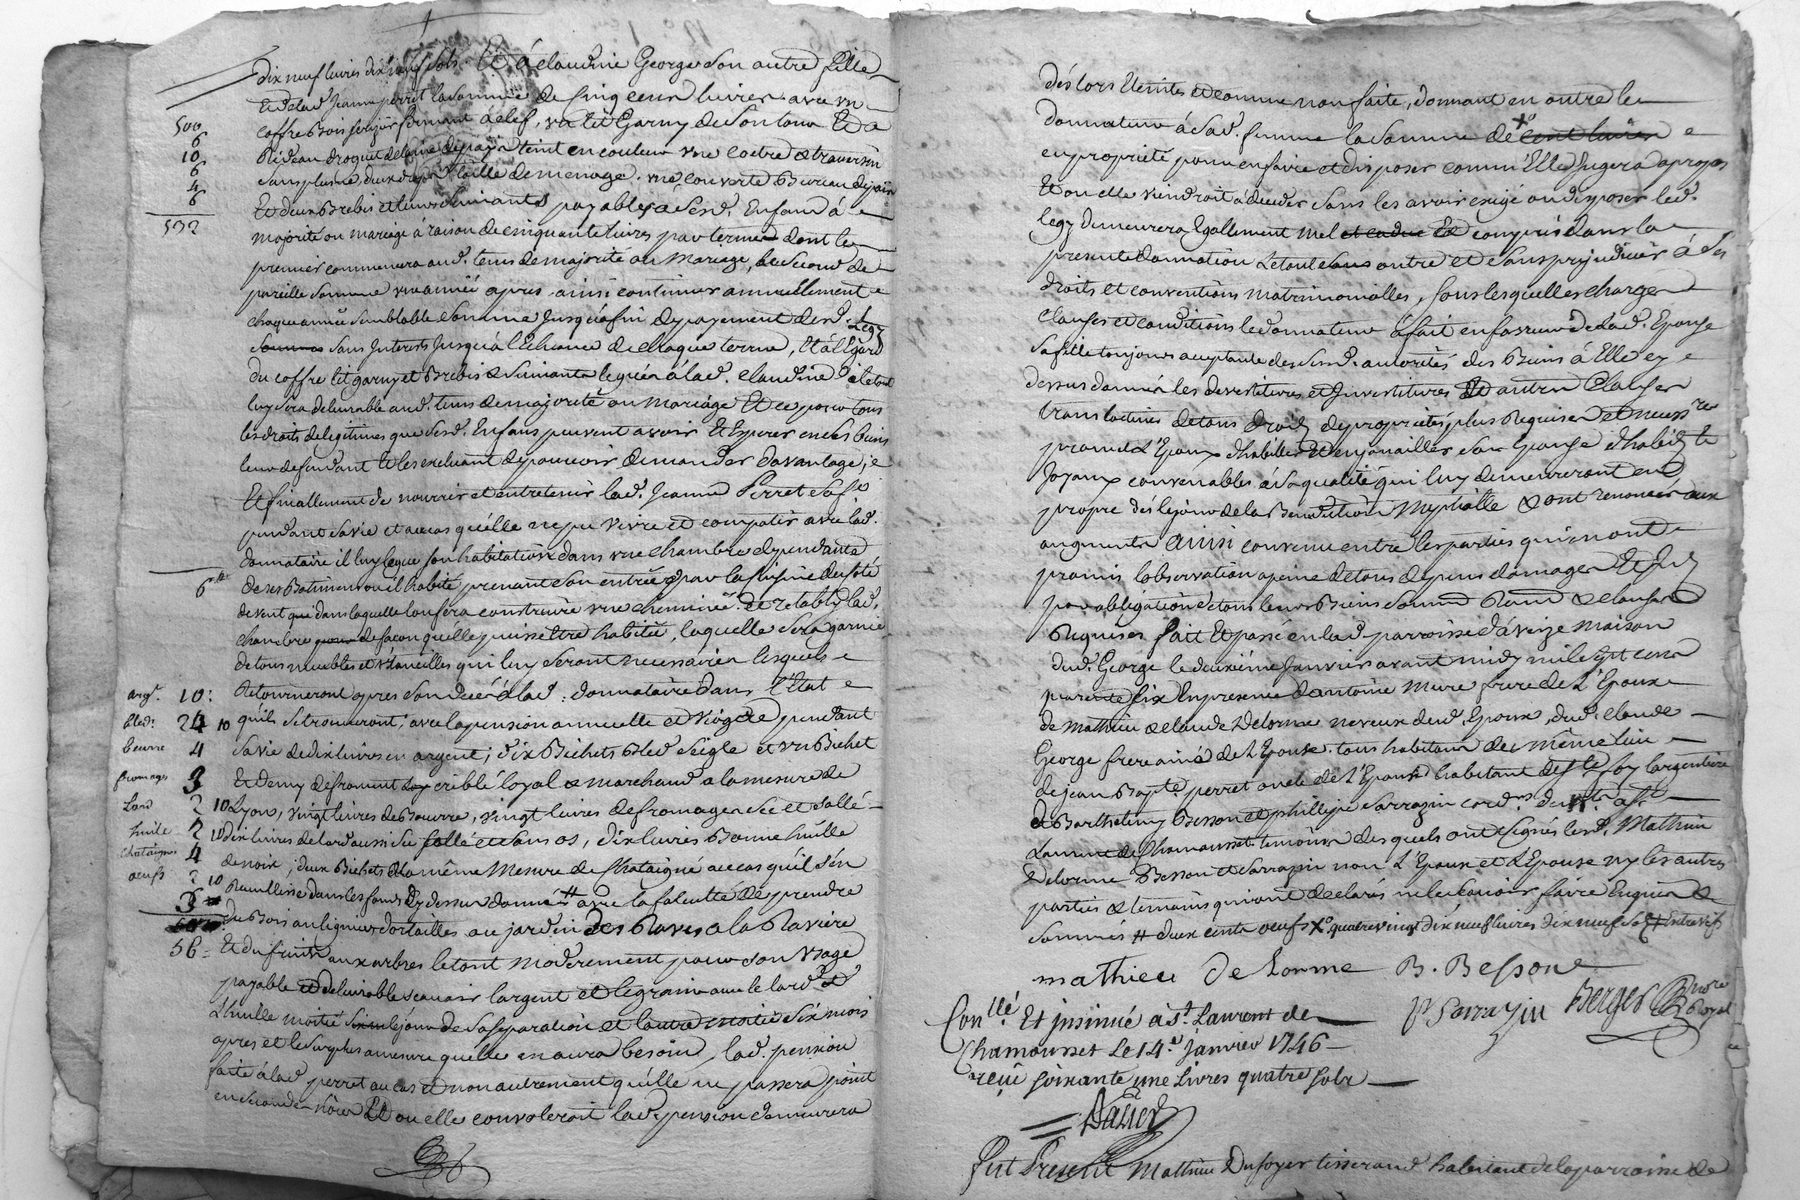 dix neuf livres dix neuf sols. Et á claudine George son autre fille
Et de lad. Jeanne perret la somme de cinq cens livres avec un
500
coffre Bois sapin fermant á clef, un lit Garny de son tour Et d
6
Rideau droguet de laine de païs teint en couleur une coetre & traversin
10
sans plume, deux draps toille de menage. une couverte Bureau de païs
6
4
Et deux Brebis et leurs suivants payables a sesd. Enfans á
6
532
majorité ou mariage á raison de cinquante livres par terme dont le
premier commencera aud. tems de majorité ou Mariage, le second de
pareille somme une année apres ainsi continuer annuellement
chaque année semblable somme jusqua fin de payement desd. Legs
sans Interets jusqu'á l'Echeance de chaque terme, Et á l'Egard
du coffre lit garny et Brebis & suivants legués á lad. claudine le tout
luy sera delivrable aud. tems de majorité ou Mariage Et ce pour tous
les droits de legitimes que sesd. Enfans peuvent avoir Et Esperer en ses biens
leur deffendant Et les excluant de pouvoir demander davantage,
Et finallement de nourrir et entretenir lad. Jeanne Perret
pendant sa vie et au cas qu'elle ne put vivre et compatir avec lad.
donnataire il luy legue son habitation dans une chambre dependante
6
de ses Batimens ou il habite prenant son entrée par la cuisine du coté
de vent dans laquelle l'on fera construire une cheminée et retablir lad.
chambre de façon qu'elle puisse Etre habitée, laquelle sera garnie
de tous meubles et Utancilles qui luy seront necessaires lesquels
argt. 10:
Retourneront apres son decés á lad. donnataire dans l'Etat
bled: 24 10
qu'ils se trouveront, avec la pension annuelle et viagere pendant
beurre 4
sa vie de dix livres en argent, dix Bichets Bled seigle et un Bichet
fromages 3
Et demy de froment criblé loyal & marchand a la mesure de
Lard 2 10
Lyon, vingt livres de Beurre, vingt livres de fromages sec et sallé
huile 2 10
dix livres de lard aussi sec sallé et sans os, dix livres Bonne huille
chataignes 4
de noix, deux Bichets de la même Mesure de chataigne au cas qu'il s'en
oeufs 2 10
Recueillisse dans les fonds cy dessus donnés # avec la faculté de prendre
3
du Bois au ligneur d'ortailles au jardin des Raves a la Raviere
56
Et du fruits aux arbres le tout moderement pour son usage
payable et delivrable scavoir l'argent et le grain avec le lard et
L'huille moitié le jour de sa separation et l'autre moitié six mois
apres et le surplus a mesure quelle en aura besoin, lad. pension
faite á lad. perret au cas et non autrement qu'elle ne passera point
en secondes nôces Et ou elle convoleroit lad. pension demeurera
dés lors Eteinte et comme non faite, donnant en outre le
donnateur á sad. femme la somme de x cent livres
en propriété pour en faire et disposer comm'Elle jugera a propos
Et ou elle viendroit a deceder sans les avoir exigé ou disposer led.
legs demeurera Egallement nul et compris dans la
presente donnation Le tout sans outre et sans prejudicier á ses
droits et conventions matrimonialles, sous lesquelles charges
clauses et conditions le donnateur s'est fait en faveur de lad. Epouse
sa fille toujours acceptante des sesd. autorités des Biens á Elle cy
dessus donnés les devestitures et Investitures Et autres clauses
translatives de tous droits de proprietés plus Requises et necess.res
promet l'Epoux d'habiller et enjoailler son Epouse d'habits &
Joyaux convenables á sa qualité qui luy demeureront en
propre dés le jour de la Benediction Nuptialle & ont renoncés aux
augments ainsi convenu entre les parties qui en ont
promis l'observation a peine de tous depens domages Et Int
par obligation de tous leurs Biens Soumis Renon & clauses
Requises fait Et passé en lad. parroisse d'aveize Maison
dud. George le deuxième Janvier avant midy mil sept cens
quarante six En presence d'antoine Mure frere de l'Epoux
de Mathieu & claude Delorme neveux dud. Epoux, dud. claude
George frere ainé de l'Epouse. tous habitans de même lieu
de jean Bapte. perret oncle de l'Epouse habitant de Ste. foy l'argentiere
& Barthelemy Besson et phillipe Sarrazin cord.rs du
Laurent de Chamousset temoins desquels ont signés lesd. Mathieu
Delorme Besson et Sarrazin non l'Epoux et l'Epouse ny les autres
parties & temoins qui ont declarés ne le scavoir faire Enquis &
Sommés # deux cents oeufs x quatre vingt dix neuf livres dix neuf sols
mathieu de Lorme B. Besson
P Sarrazin Berger Nore Royal
Con.llé Et insinué á St. Laurent de
Chamousset Le 14.e Janvier 1746
reçu soixante une Livres quatre Sols
fut Present Mathieu Dufoyer tisserand habitant de la parroisse de